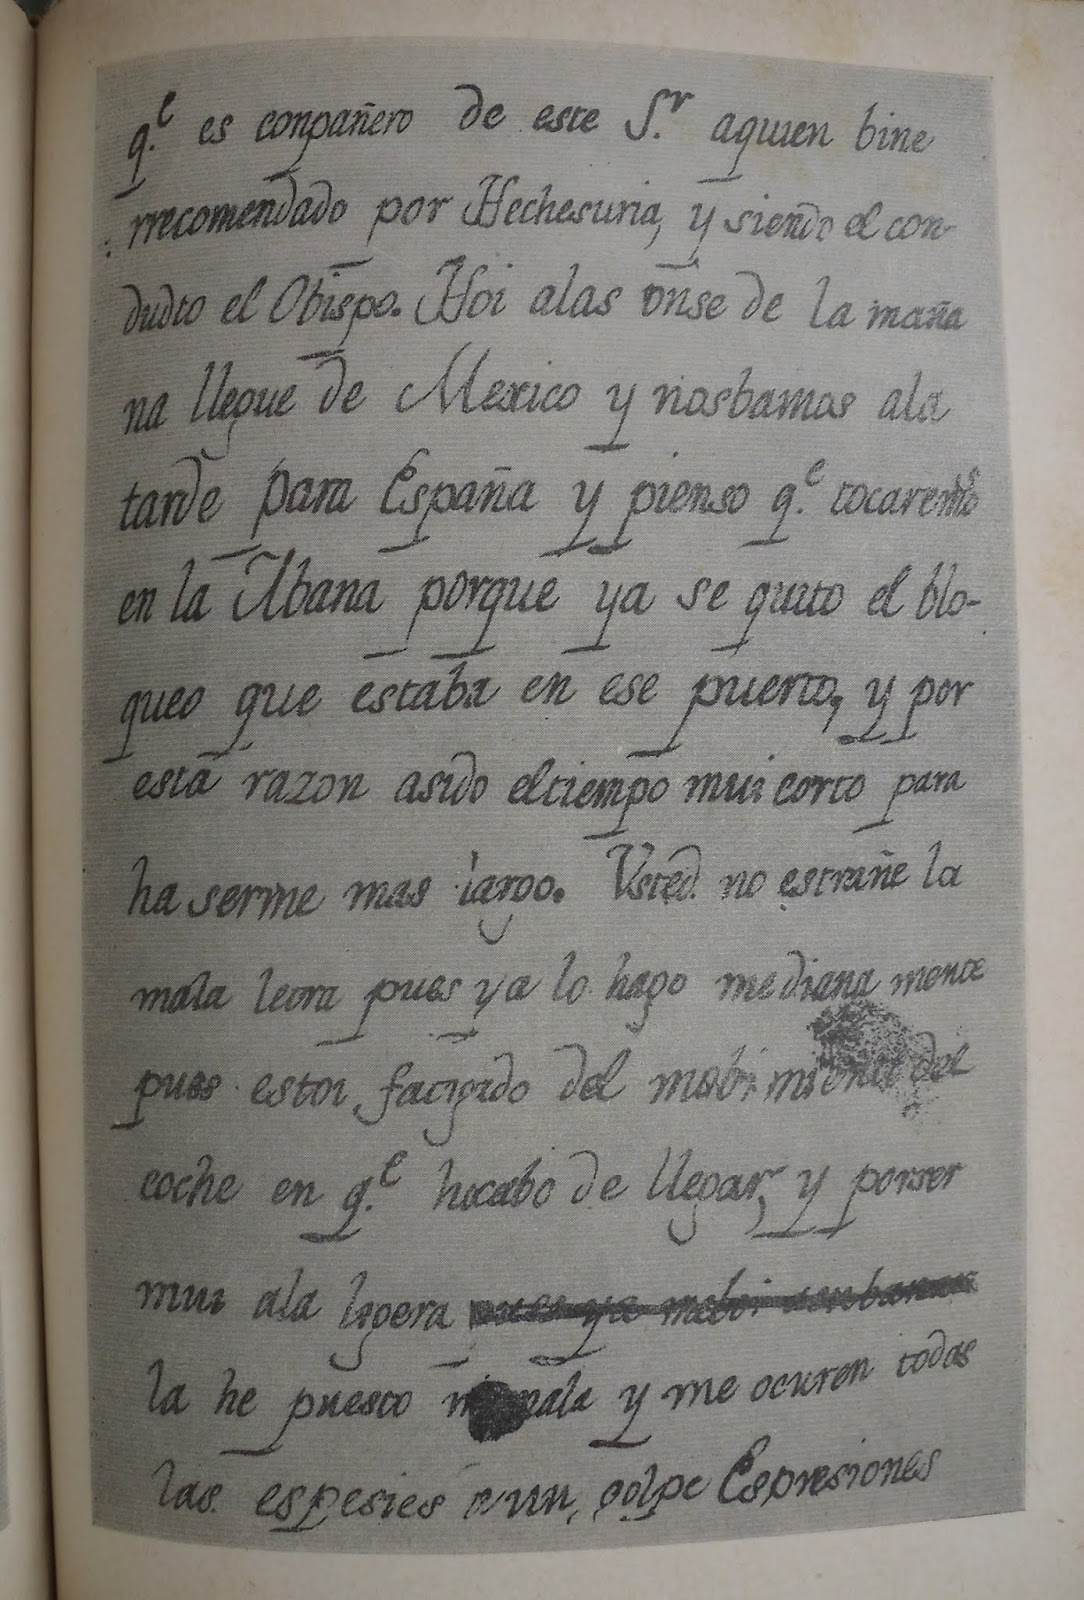 q.e es conpañero de este S.r aquien bine
rrecomendado por Hechesuria, y siendo el con-
dudto el Obispo. Hoi alas onse de la maña
na llegue de Mexico y nosbamos ala
tarde para España y pienso q.e tocaremos
en la Abana porque ya se quito el blo-
queo que estaba en ese puerto, y por
esta razon asido eltiempo mui corto para
ha serme mas largo. Usted. no estrañe la
mala letra pues ya lo hago mediana mente
pues estoi fatigado del mobimiento del
coche en q.e hacabo de llegar, y porser
mui ala ligera pues ya meboi
la he puesto mala y me ocuren todas
las espesies a un, golpe Espresiones